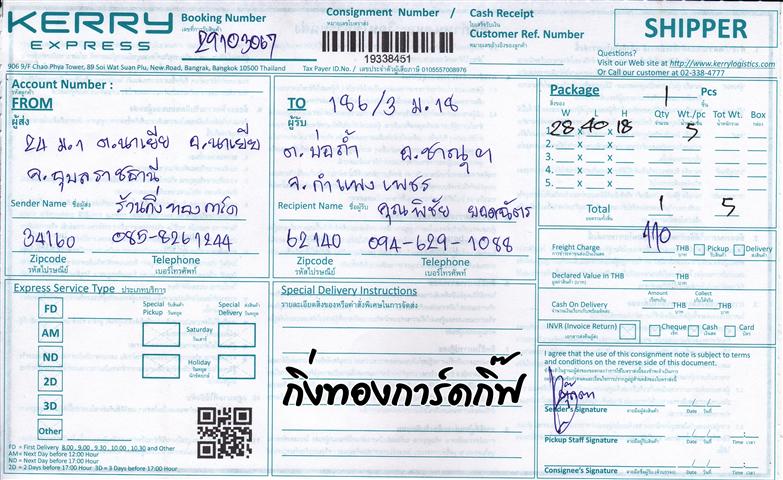 KERRY
EXPRESS
Booking Number
เลขที่การรับสินค้า
29103067
Consignment Number /
หมายเลขใบตราส่ง
19338451
Cash Receipt
ใบเสร็จรับเงิน
Customer Ref. Number
หมายเลขอ้างอิงของลูกค้า
SHIPPER
Questions?
Visit our Web site at http://www.kerrylogistics.com
Or Call our customer at 02-338-4777
906 9/F Chao Phya Tower, 89 Soi Wat Suan Plu, New Road, Bangrak, Bangkok 10500 Thailand
Tax Payer ID.No. / เลขประจำตัวผู้เสียภาษี 0105557008976
Account Number :
รหัสลูกค้า
FROM
ผู้ส่ง
24 ม.1 ต.นาเยีย อ.นาเยีย
จ.อุบลราชธานี
Sender Name ชื่อผู้ส่ง ร้านกิ่งทองการ์ด
34160 085-8261244
Zipcode Telephone
รหัสไปรษณีย์ เบอร์โทรศัพท์
TO 186/3 ม.18
ผู้รับ
ต.บ่อถ้ำ อ.ขาณุฯ
จ.กำแพงเพชร
Recipient Name ชื่อผู้รับ คุณพิชัย
62140 094-629-1088
Zipcode Telephone
รหัสไปรษณีย์ เบอร์โทรศัพท์
Package 1 Pcs
สิ่งของ ชิ้น
W L H Qty Wt./pc Tot Wt. Box
1. 28 x 40 x 18 5
2. x x
3. x x
4. x x
5. x x
Total 1 5
Freight Charge 110 THB Pickup Delivery
Declared Value in THB THB
Amount Collect
Cash On Delivery THB THB
INVR (Invoice Return) Cheque Cash Card
Express Service Type ประเภทบริการ
Special Pickup Special Delivery
FD
AM Saturday
วันเสาร์
ND Holiday
วันหยุด
2D
3D
Other
FD = First Delivery 8.00 , 9.00 , 9.30 , 10.00 , 10.30 and Other
AM = Next Day before 12:00 Hour
ND = Next Day before 17:00 Hour
2D = 2 Days before 17:00 Hour 3D = 3 Days before 17:00 Hour
Special Delivery Instructions
รายละเอียดสิ่งของหรือคำสั่งพิเศษในการจัดส่ง
กิ่งทองการ์ดกิ๊ฟ
I agree that the use of this consignment note is subject to terms
and conditions on the reverse side of this document.
Sender's Signature ลายมือชื่อผู้ส่ง Date / วันที่
Pickup Staff Signature Date / วันที่ Time เวลา
Consignee's Signature Date / วันที่ Time เวลา